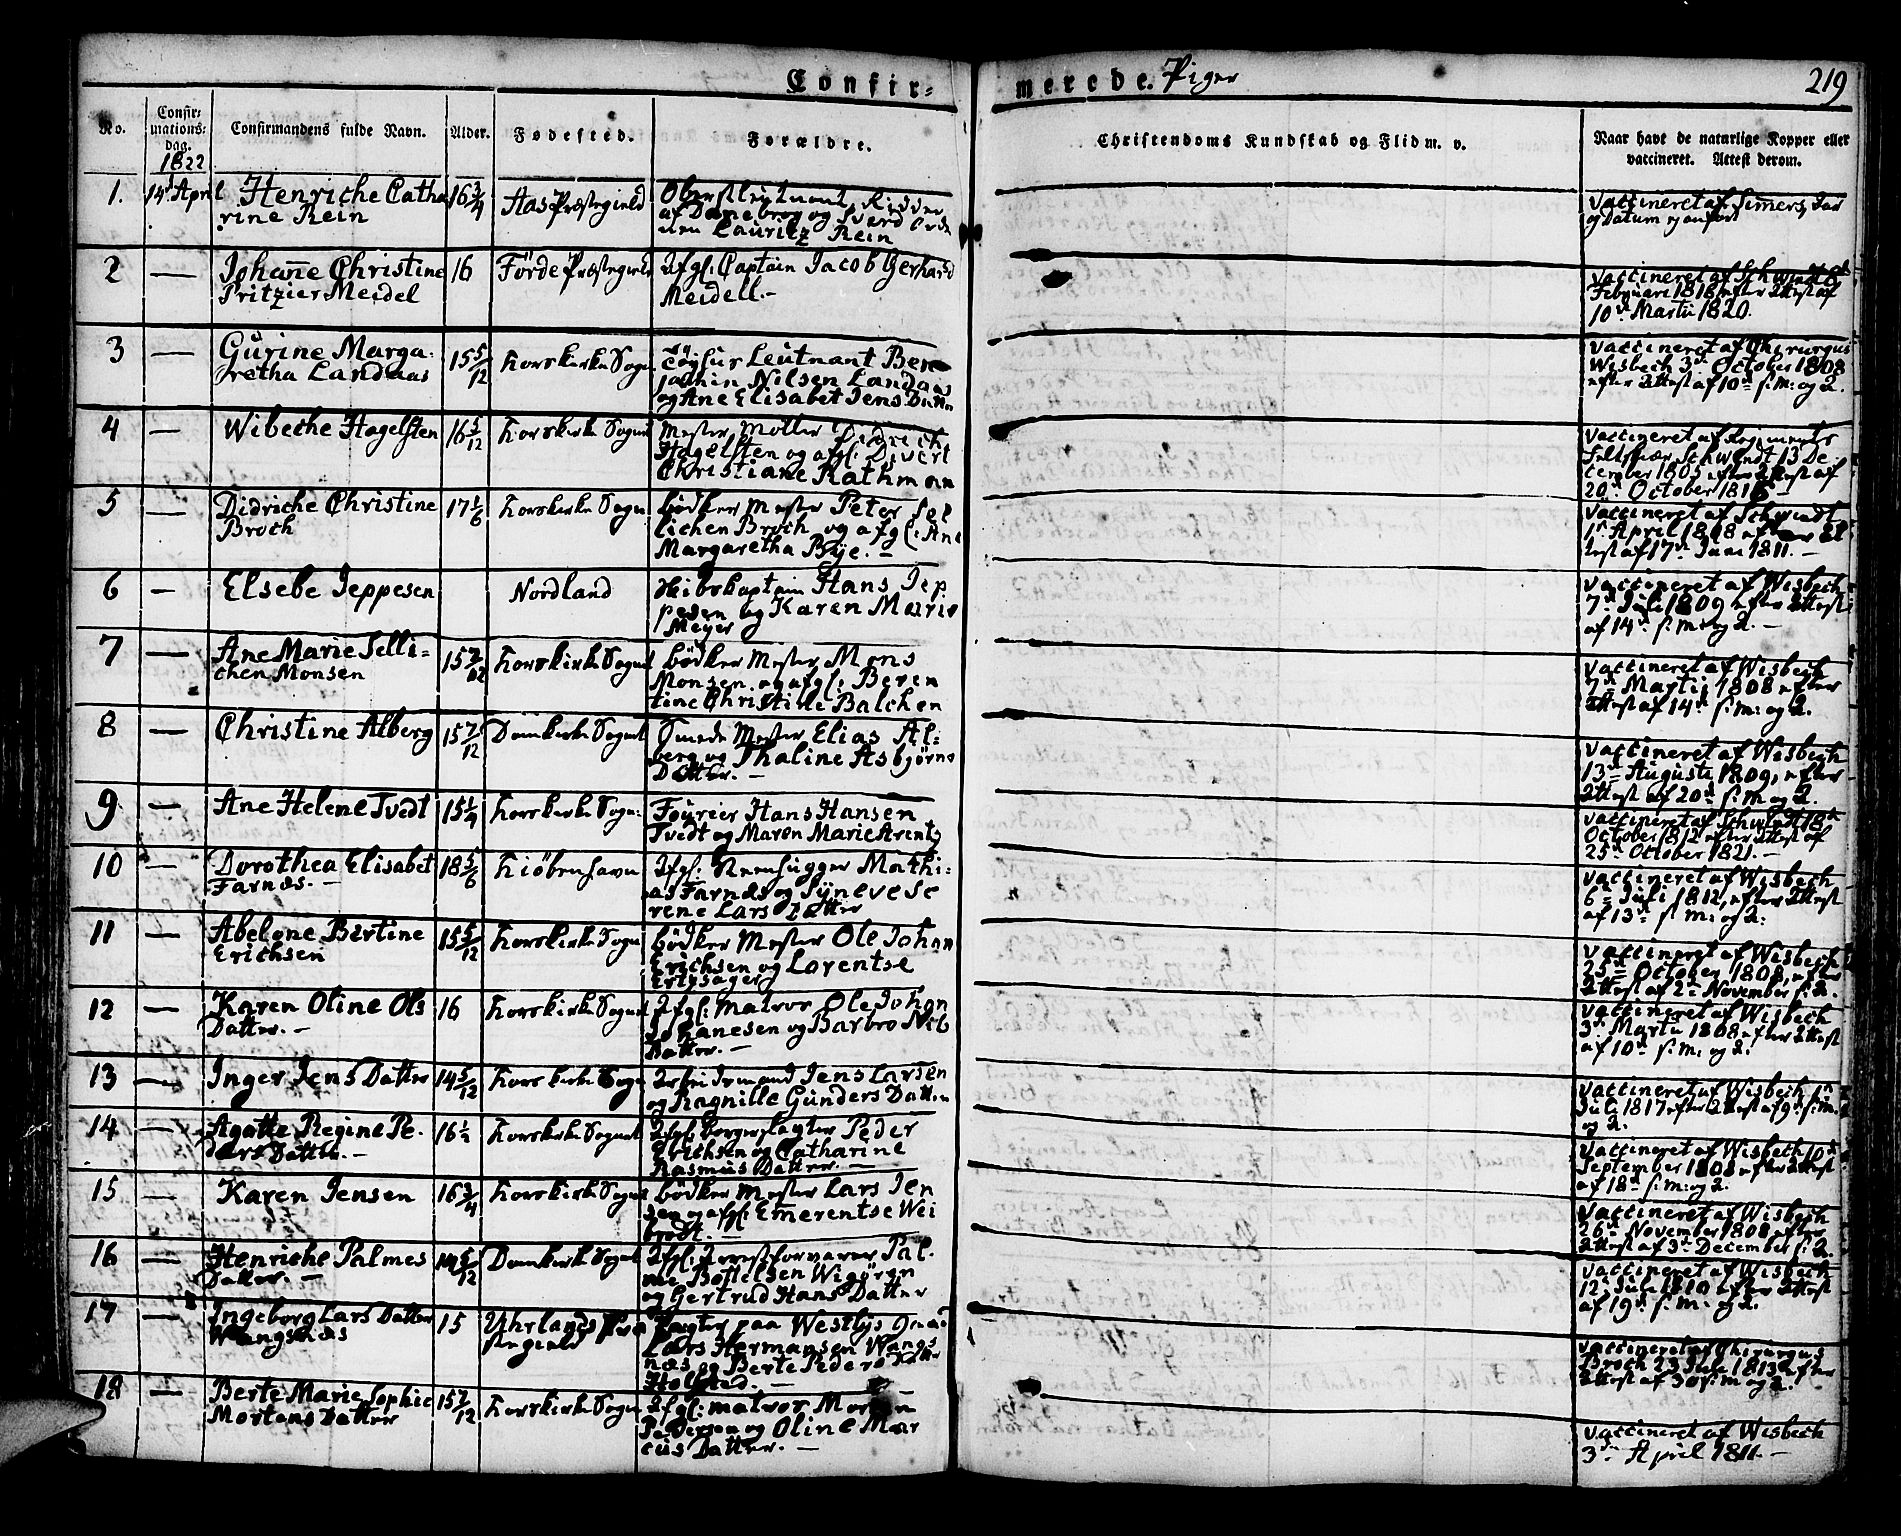 Confir-
merede. Piger
219
No.
Confir-
mations-
dag.
1822
Confirmandens fulde Navn.
Alder.
Fødested.
Forældre.
Christendoms Kundskab og Flid m. v.
Naar havt de naturlige Kopper eller
vaccineret. Attest derom.
1. 14 April Henriche Catha 16 3/4 Aas Præstegield Oberstleutnant, Ridder
rine Rein af Danebrog og Sværd Orde
nen Lauritz Rein
Vaccineret af Simers, Dar
og Datum ey anfört
2 — Johanne Christine 16 Förde Præstegield Afgl: Captain Jacob Gerhard
Pritzier Meidel Meidell. —
Vaccineret af Schwindt 8d
Februari 1818, efter Attest af
10d Martii 1820.
3 — Gurine Marga- 15 5/12 Korskirke Sogn Töyhus Leutnant Ben
retha Landaas jamin Nilsen Landaas
og Ane Elisabet Jens Datter
Vaccineret af Chirurgus
Wisbech 3d October 1808
efter Attest af 10d s: m: og 2.
4 — Wibeche Hagelsten 16 5/12 Korskirke Sogn Mester Møller Didrich
Hagelsten og afgl: Divert
Christiane Rathman
Vaccineret af Regiments
Feltskær Schwindt 13 De
cember 1805 efter Attest af
20d October 1816 —
5 — Didriche Christine 17 1/6 Korskirke Sogn bödker Mester Peter Sel
Broch lichen Broch og afgl: Ane
Margaretha Bye. —
Vaccineret af Schwindt
1d April 1808 efter At
test af 17d Juni 1811. —
6 — Elsebe Jeppesen Nordland Skibskaptain Hans Jep
pesen og Karen Marie
Meyer
Vaccineret af Wisbech
7d Juli 1809 efter Attest
af 14d s: m: og 2. —
7 — Ane Marie Selli- 15 7/12 Korskirke Sogn bödker Mester Mons
chen Monsen Monsen og afgl: Beren
tine Christille Balchen
Vaccineret af Wisbech
7d Martij 1808, efter
Attest af 14d s: m: og 2.
8 — Christine Alberg 15 7/12 Domkirke Sogn Smede Mester Elias Al-
berg og Thaline Asbjörns
Datter. —
Vaccineret af Wisbech
13d Augusti 1809, efter
Attest af 20d s: m og 2.
9 — Ane Helene Tvedt 15 1/4 Korskirke Sogn: Fourier Hans Hansen
Tvedt og Maren Marie Arentz
Vaccineret af Schwindt 18d
October 1812 efter Attest af
25d October 1821. —
10 Dorothea Elisabet 18 5/6 Kiöbenhavn Afgl: Steenhugger Mathi-
Farnæs. — as Farnæs og Synneve Se
rene Lars Datter
Vaccineret af Wisbech
6d Juli 1812, efter Attest
af 13d s: m: og 2.
11 — Abelone Bertine 15 5/12 Korskirke Sogn bödker Mester Ole Johan
Erichsen Erichsen og Lorentse
Vaccineret af Wisbech
25d October 1808, efter
Attest af 2d November s: 2.
12 — Karen Oline Ols 16 Korskirke Sogn Afgl: Matros Ole Johan
Datter. — Johanesen og Barbro Nils
Datter. —
Vaccineret af Wisbech
3d Martii 1808 efter Attest
af 10d s: m: og 2.
13 — Inger Jens Datter 14 5/12 Korskirke Sogn Arbeidsmand Jens Larsen
og Ragnille Gunders Datter
Vaccineret af Wisbech 1d
Juli 1817 efter Attest af 9d s: m:
og 2.
14 — Agatte Regine Pe- 16 1/2 Korskirke Sogn Afgl: borger slagter Peder
ders Datter. — Erichsen og Catharine
Rasmus Datter. —
Vaccineret af Wisbech 10d
September 1808 efter Attest
af 18d s: m: og 2.
15 — Karen Jensen 16 3/4 Korskirke Sogn bödker Mester Lars Jen
sen og afgl: Emerentse Wei
brodt. —
Vaccineret af Wisbech
26d November 1808, efter
Attest af 3d December s: 2.
16 — Henriche Palmes 14 5/12 Domkirke Sogn Afgl: Arrestforvarer Pal-
Datter. — me Bottelsen Wigören
og Gertrud Hans Datter
Vaccineret af Wisbech
12d Juli 1810 efter Attest
af 19d s: m: og 2.
17 — Ingeborg Lars Datter 15 Uhrlands Præ
Wangsnæs stegield Pagter paa Westlys Gnaad
Lars Hermansen Wangs
næs og Berte Peders Datter
Holsted. —
Vaccineret af Chirurgus
Broch 23 Juli 1813 efter
Attest af 30 s: m og 2.
18 — Berte Marie Sophie 15 7/12 Korskirke Sogn Afgl: matros Morten
Mortens Datter Pedersen og Oline Mar
cus Datter. —
Vaccineret af Wisbech
3d April 1811. —